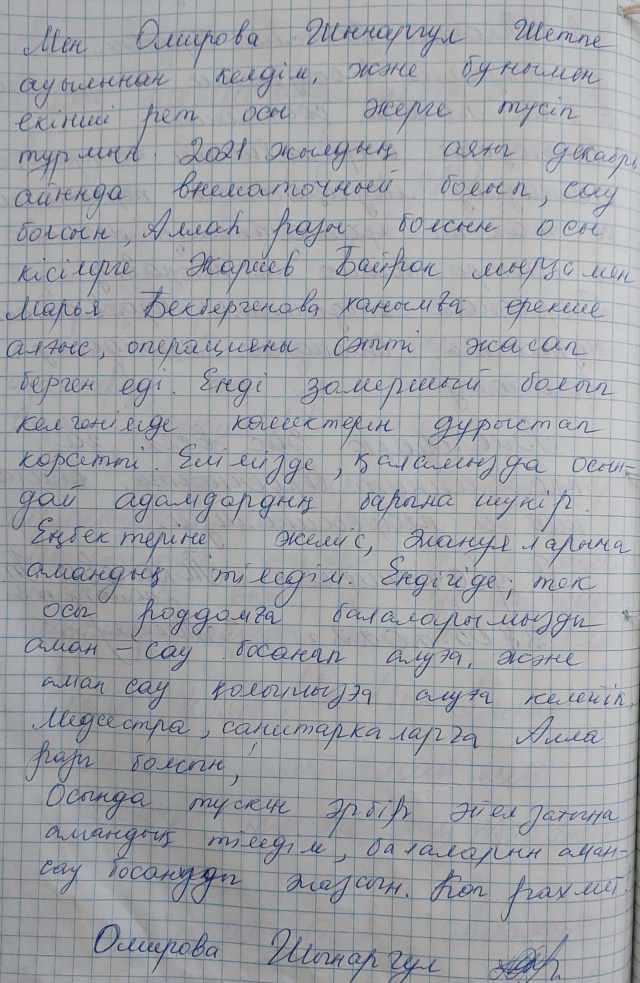 Мен Омирова Шынаргул Шетпе
ауылынан келдім, және бунымен
екінші рет осы жерге түсіп
турмын. 2021 жылдың аяғы декабрь
айында внематочный болып, сау
болсын, Аллаһ разы болсын осы
кісілерге Жариев Байрон мырза мен
Марья Бекбергенова ханымға ерекше
алғыс, операцияны сәтті жасап
берген еді. Енді замерший болып
келгенімде көмектерін дурыстап
көрсетті. Елімізде, қаламызда осын-
дай адамдардың барына шүкір.
Еңбектеріне жеміс, жанұяларына
амандық тілеймін. Ендігіде, тек
осы роддомға балаларымызды
аман-сау босанып алуға, және
аман сау қолымызға алуға келейік,
Медсестра, санитаркаларға Алла
разы болсын!
Осында түскен әрбір әйел затына
амандық тілеймін, балаларын аман-
сау босануды жазсын. Көп рахмет.
Омирова Шынаргул